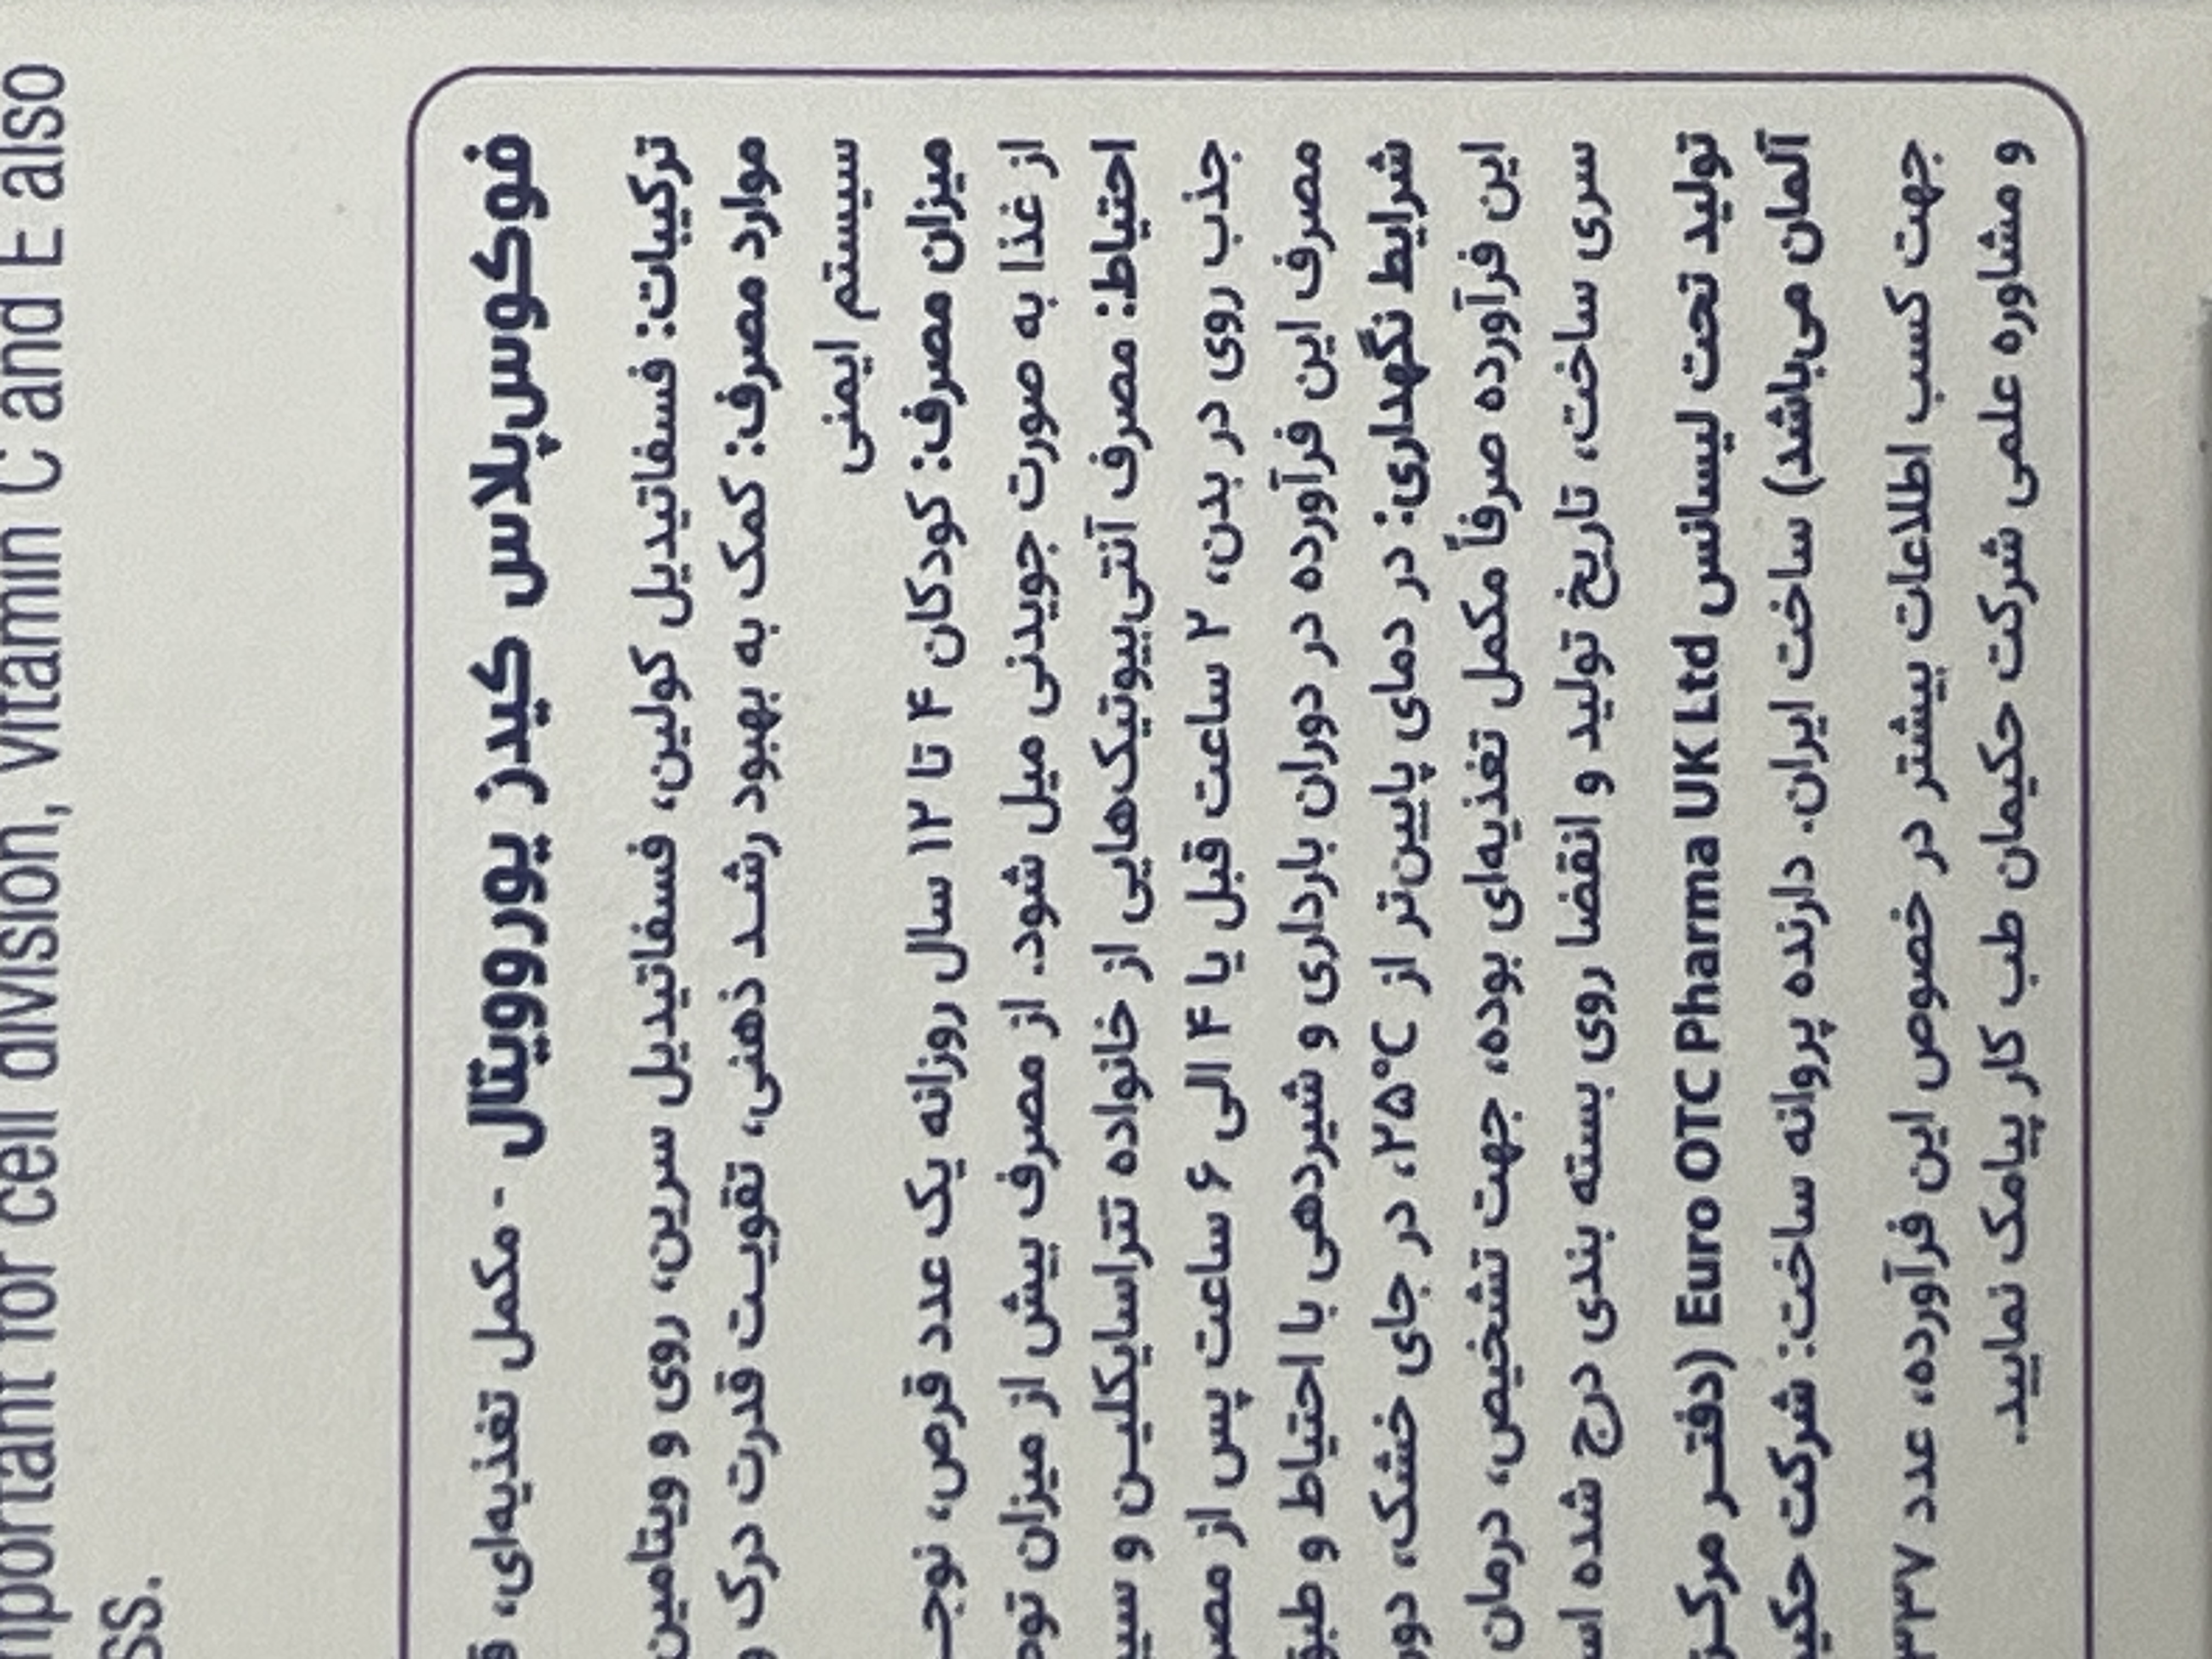 important for cell division, vitamin C and E also
ss.
فوکوس‌پلاس کیدز یوروویتال - مکمل تغذیه‌ای،
ترکیبات: فسفاتیدیل کولین، فسفاتیدیل سرین، روی و ویتامین
موارد مصرف: کمک به بهبود رشد ذهنی، تقویت قدرت درک و
سیستم ایمنی
میزان مصرف: کودکان ۴ تا ۱۲ سال روزانه یک عدد قرص،
از غذا به صورت جویدنی میل شود. از مصرف بیش از میزان
احتیاط: مصرف آنتی‌بیوتیک‌هایی از خانواده تتراسایکلین و
جذب روی در بدن، ۲ ساعت قبل یا ۴ الی ۶ ساعت پس از
مصرف این فرآورده در دوران بارداری و شیردهی با احتیاط و
شرایط نگهداری: در دمای پایین‌تر از ۲۵°C، در جای خشک،
این فرآورده صرفاً مکمل تغذیه‌ای بوده، جهت تشخیص، درمان
سری ساخت، تاریخ تولید و انقضا روی بسته بندی درج شده
تولید تحت لیسانس Euro OTC Pharma UK Ltd (دفتر
آلمان می‌باشد) ساخت ایران. دارنده پروانه ساخت: شرکت
جهت کسب اطلاعات بیشتر در خصوص این فرآورده، عدد ۳۳۷
و مشاوره علمی شرکت حکیمان طب کار پیامک نمایید.